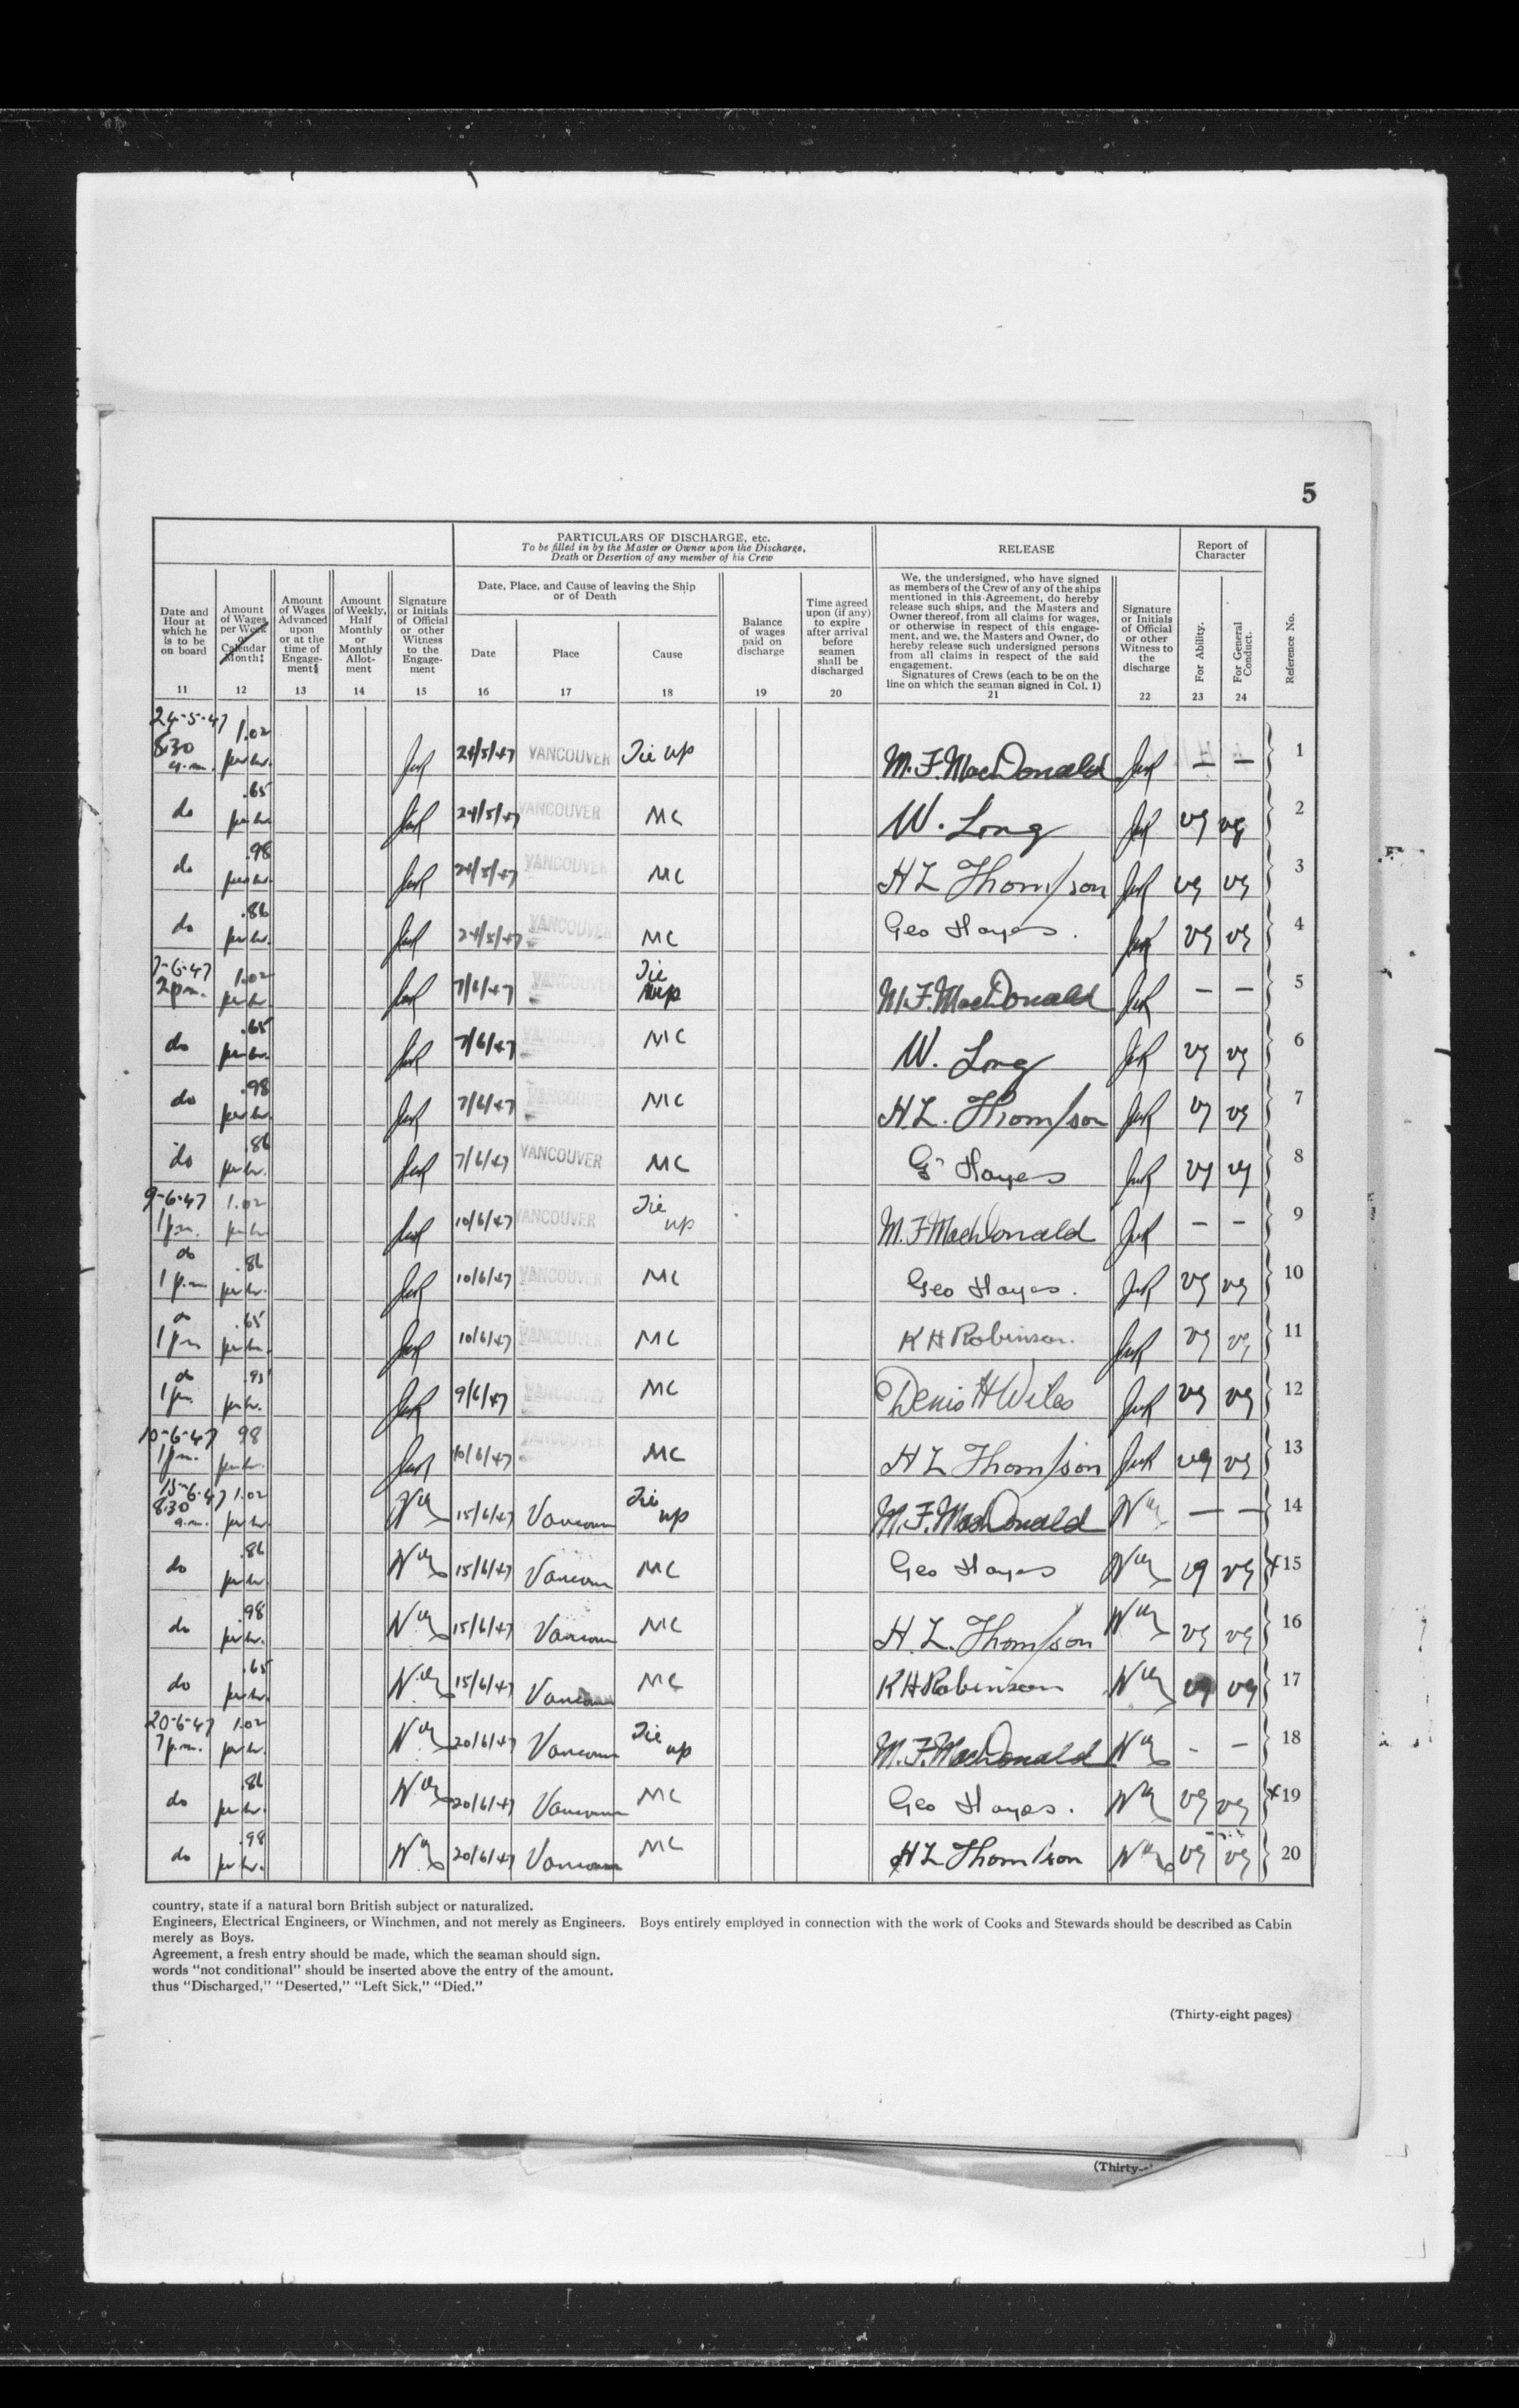 5
PARTICULARS OF DISCHARGE, etc.
To be filled in by the Master or Owner upon the Discharge,
Death or Desertion of any member of his Crew
RELEASE
Report of
Character
Date and
Hour at
which he
is to be
on board
11
Amount
of Wages
per Week
or
Calendar
Month‡
12
Amount
of Wages
Advanced
upon
or at the
time of
Engage-
ment§
13
Amount
of Weekly,
Half
Monthly
or
Monthly
Allot-
ment
14
Signature
or Initials
of Official
or other
Witness
to the
Engage-
ment
15
Date, Place, and Cause of leaving the Ship
or of Death
Date
16
Place
17
Cause
18
Balance
of wages
paid on
discharge
19
Time agreed
upon (if any)
to expire
after arrival
before
seamen
shall be
discharged
20
We, the undersigned, who have signed
as members of the Crew of any of the ships
mentioned in this Agreement, do hereby
release such ships, and the Masters and
Owner thereof, from all claims for wages,
or otherwise in respect of this engage-
ment, and we, the Masters and Owner, do
hereby release such undersigned persons
from all claims in respect of the said
engagement.
Signatures of Crews (each to be on the
line on which the seaman signed in Col. 1)
21
Signature
or Initials
of Official
or other
Witness to
the
discharge
22
For Ability.
23
For General
Conduct.
24
Reference No.
24-5-47 8.30 a.m. 1.02 per hr. 24/5/47 VANCOUVER Tie up M. F. MacDonald — — 1
do .65 per hr. 24/5/47 VANCOUVER MC W. Long vg vg 2
do .98 per hr. 24/5/47 VANCOUVER MC H L Thompson vg vg 3
do .86 per hr. 24/5/47 VANCOUVER MC Geo Hayes. vg vg 4
7-6-47 2 p.m. 1.02 per hr 7/6/47 VANCOUVER Tie up M. F. MacDonald — — 5
do .65 per hr. 7/6/47 VANCOUVER MC W. Long vg vg 6
do .98 per hr. 7/6/47 VANCOUVER MC H. L. Thompson vg vg 7
do .86 per hr. 7/6/47 VANCOUVER MC G Hayes vg vg 8
9-6-47 1 p.m. 1.02 per hr 10/6/47 VANCOUVER Tie up M. F MacDonald — — 9
do 1 p.m .86 per hr. 10/6/47 VANCOUVER MC Geo Hayes. vg vg 10
do 1 pm .65 per hr. 10/6/47 VANCOUVER MC K H Robinson. vg vg 11
do 1 pm. per hr. 9/6/47 VANCOUVER MC Denis H Wiles vg vg 12
10-6-47 1 p.m. 98 per hr. 10/6/47 VANCOUVER MC H L Thompson vg vg 13
15-6-47 8.30 a.m. 1.02 per hr 15/6/47 Vancouver Tie up M. F. MacDonald — — 14
do .86 per hr. 15/6/47 Vancouver MC Geo Hayes vg vg x15
do .98 per hr. 15/6/47 Vancouver MC H. L. Thompson vg vg 16
do .65 per hr. 15/6/47 Vancouver MC K H Robinson vg vg 17
20-6-47 7 p.m. 1.02 per hr. 20/6/47 Vancouver Tie up M. F. MacDonald - - 18
do .86 per hr. 20/6/47 Vancouver MC Geo Hayes. vg vg x19
do .98 per hr. 20/6/47 Vancouver MC H L Thompson vg vg 20
country, state if a natural born British subject or naturalized.
Engineers, Electrical Engineers, or Winchmen, and not merely as Engineers. Boys entirely employed in connection with the work of Cooks and Stewards should be described as Cabin
merely as Boys.
Agreement, a fresh entry should be made, which the seaman should sign.
words "not conditional" should be inserted above the entry of the amount.
thus "Discharged," "Deserted," "Left Sick," "Died."
(Thirty-eight pages)
(Thirty-